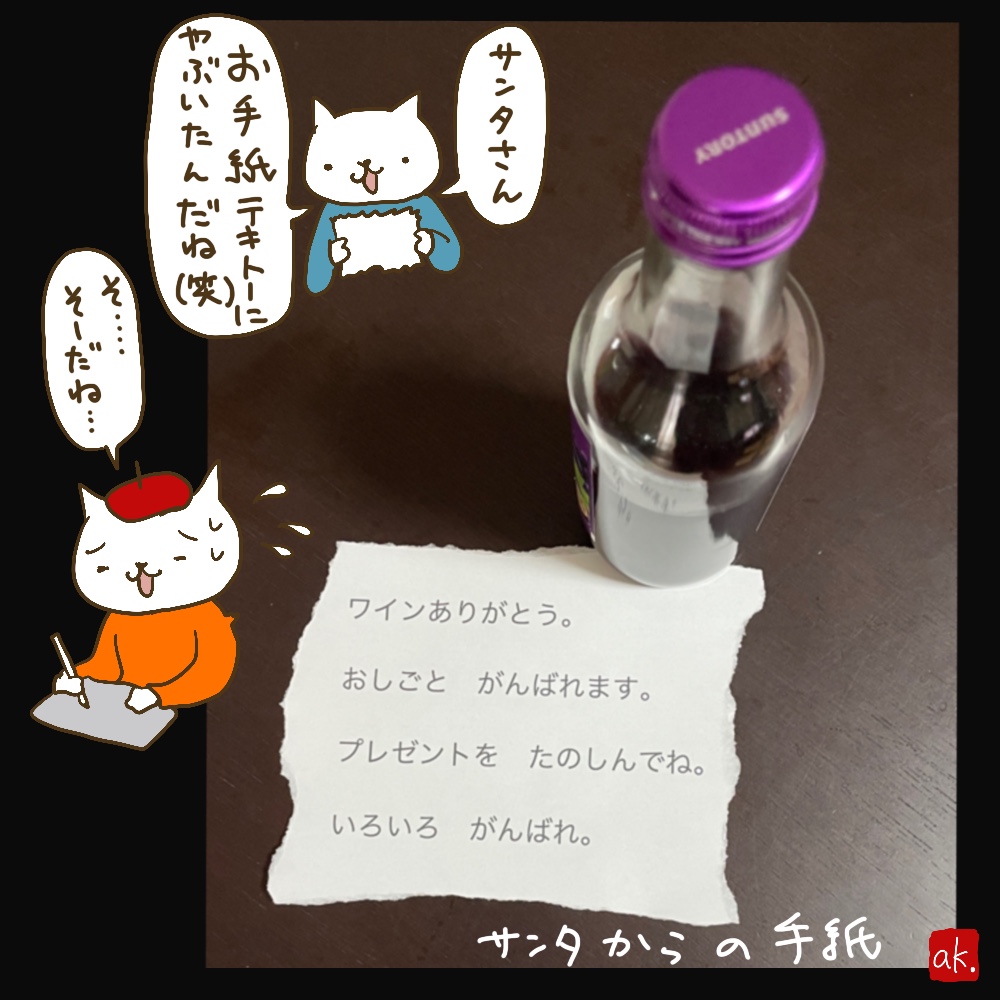 サンタさん
お手紙テキトーに
やぶいたんだね(笑)
そ....
そーだね...
SUNTORY
ワインありがとう。
おしごと　がんばれます。
プレゼントを　たのしんでね。
いろいろ　がんばれ。
サンタからの手紙
ak.